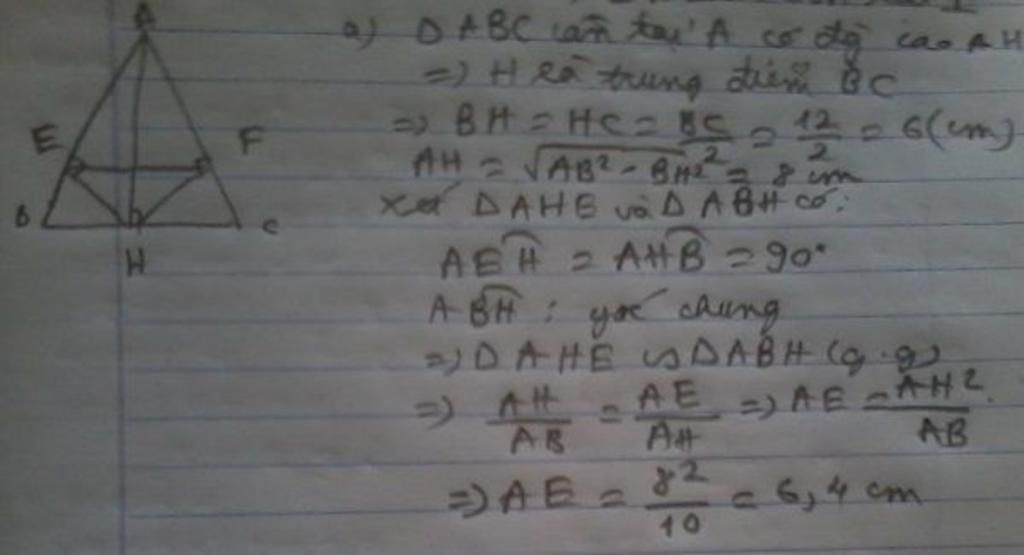 A
E
F
B
C
H
a) ΔABC cân tại A có đg cao AH
=> H là trung điểm BC
=> BH = HC = BC/2 = 12/2 = 6 (cm)
AH = √(AB² - BH²) = 8 cm
Xét ΔAHE và ΔABH có:
AEH = AHB = 90°
ABH : góc chung
=> ΔAHE ∽ ΔABH (g.g)
=> AH/AB = AE/AH => AE = AH²/AB
=> AE = 8²/10 = 6,4 cm